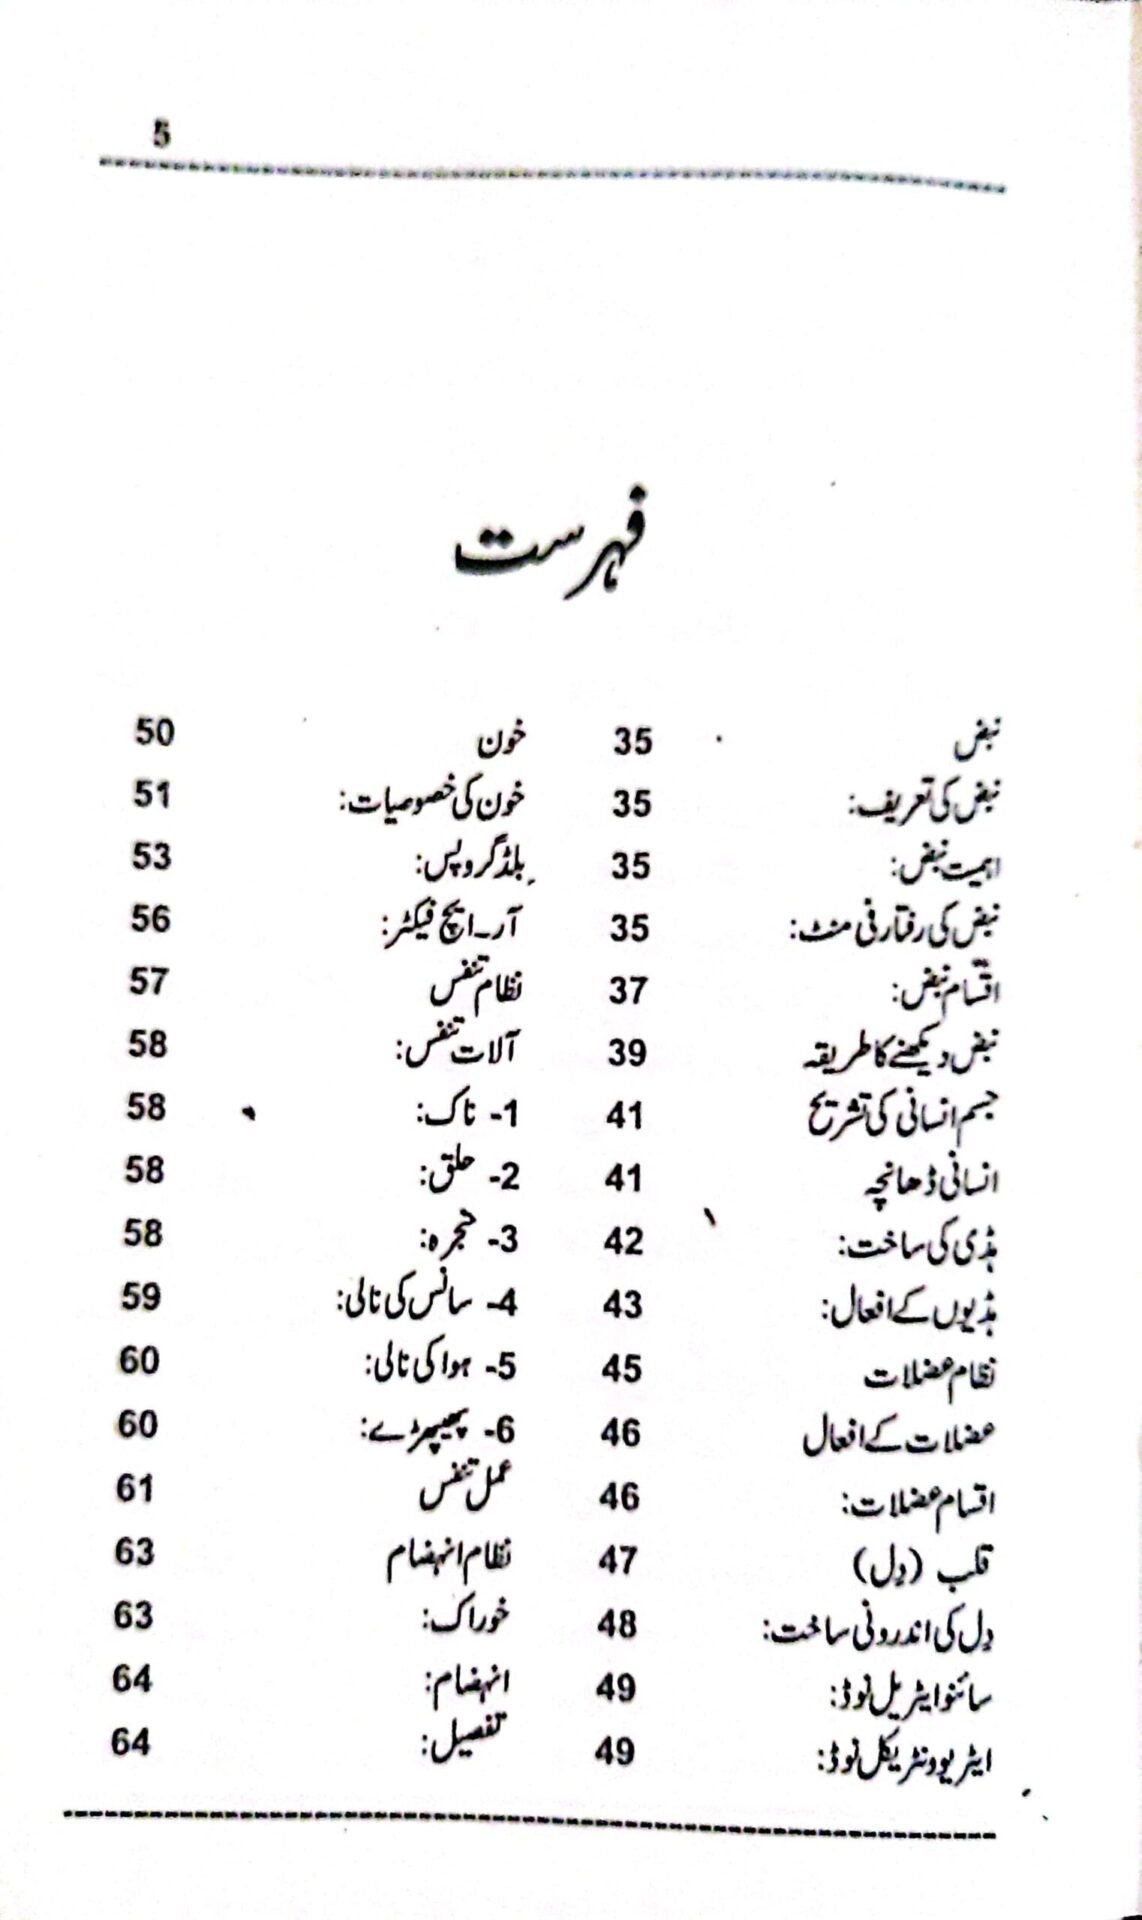 5
فہرست
نبض 35
نبض کی تعریف: 35
اہمیت نبض: 35
نبض کی رفتار فی منٹ: 35
اقسام نبض: 37
نبض دیکھنے کا طریقہ 39
جسم انسانی کی تشریح 41
انسانی ڈھانچہ 41
ہڈی کی ساخت: 42
ہڈیوں کے افعال: 43
نظام عضلات 45
عضلات کے افعال 46
اقسام عضلات: 46
قلب (دِل) 47
دِل کی اندرونی ساخت: 48
سائنو ایٹریل نوڈ: 49
ایٹریو ونٹریکل نوڈ: 49
خون 50
خون کی خصوصیات: 51
بلڈ گروپس: 53
آر۔ایچ فیکٹر: 56
نظام تنفس 57
آلات تنفس: 58
1- ناک: 58
2- حلق: 58
3- حنجرہ: 58
4- سانس کی نالی: 59
5- ہوا کی نالی: 60
6- پھیپھڑے: 60
عمل تنفس 61
نظام انہضام 63
خوراک: 63
انہضام: 64
تفصیل: 64